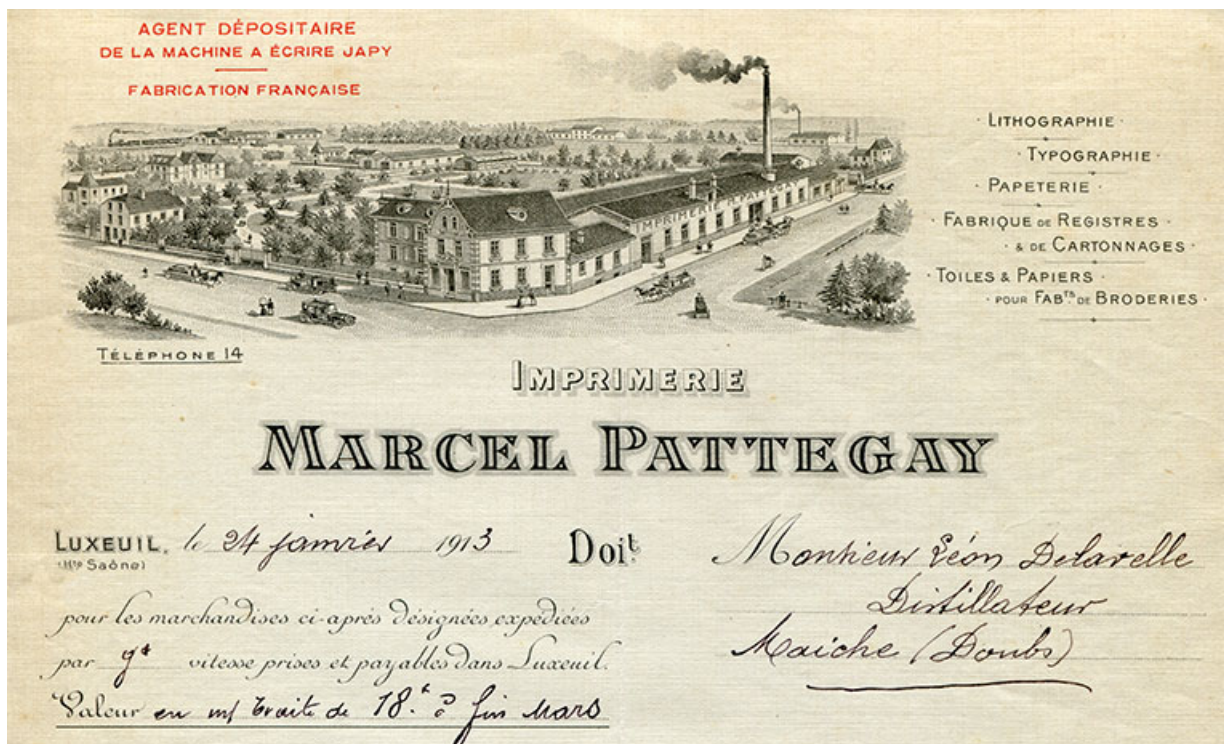 AGENT DÉPOSITAIRE
DE LA MACHINE A ÉCRIRE JAPY
FABRICATION FRANÇAISE
IMPRIMERIE M. PATTEGAY
· LITHOGRAPHIE ·
· TYPOGRAPHIE ·
· PAPETERIE ·
· FABRIQUE DE REGISTRES ·
· & DE CARTONNAGES ·
· TOILES & PAPIERS ·
· POUR FABTS. DE BRODERIES ·
TÉLÉPHONE 14
IMPRIMERIE
MARCEL PATTEGAY
LUXEUIL, le 24 janvier 1913
(Hte Saône)
Doit
Monsieur Léon Delavelle
Distillateur
Maiche (Doubs)
pour les marchandises ci-après désignées expédiées
par gde vitesse prises et payables dans Luxeuil.
Valeur en m/ traite de 18.f à fin Mars